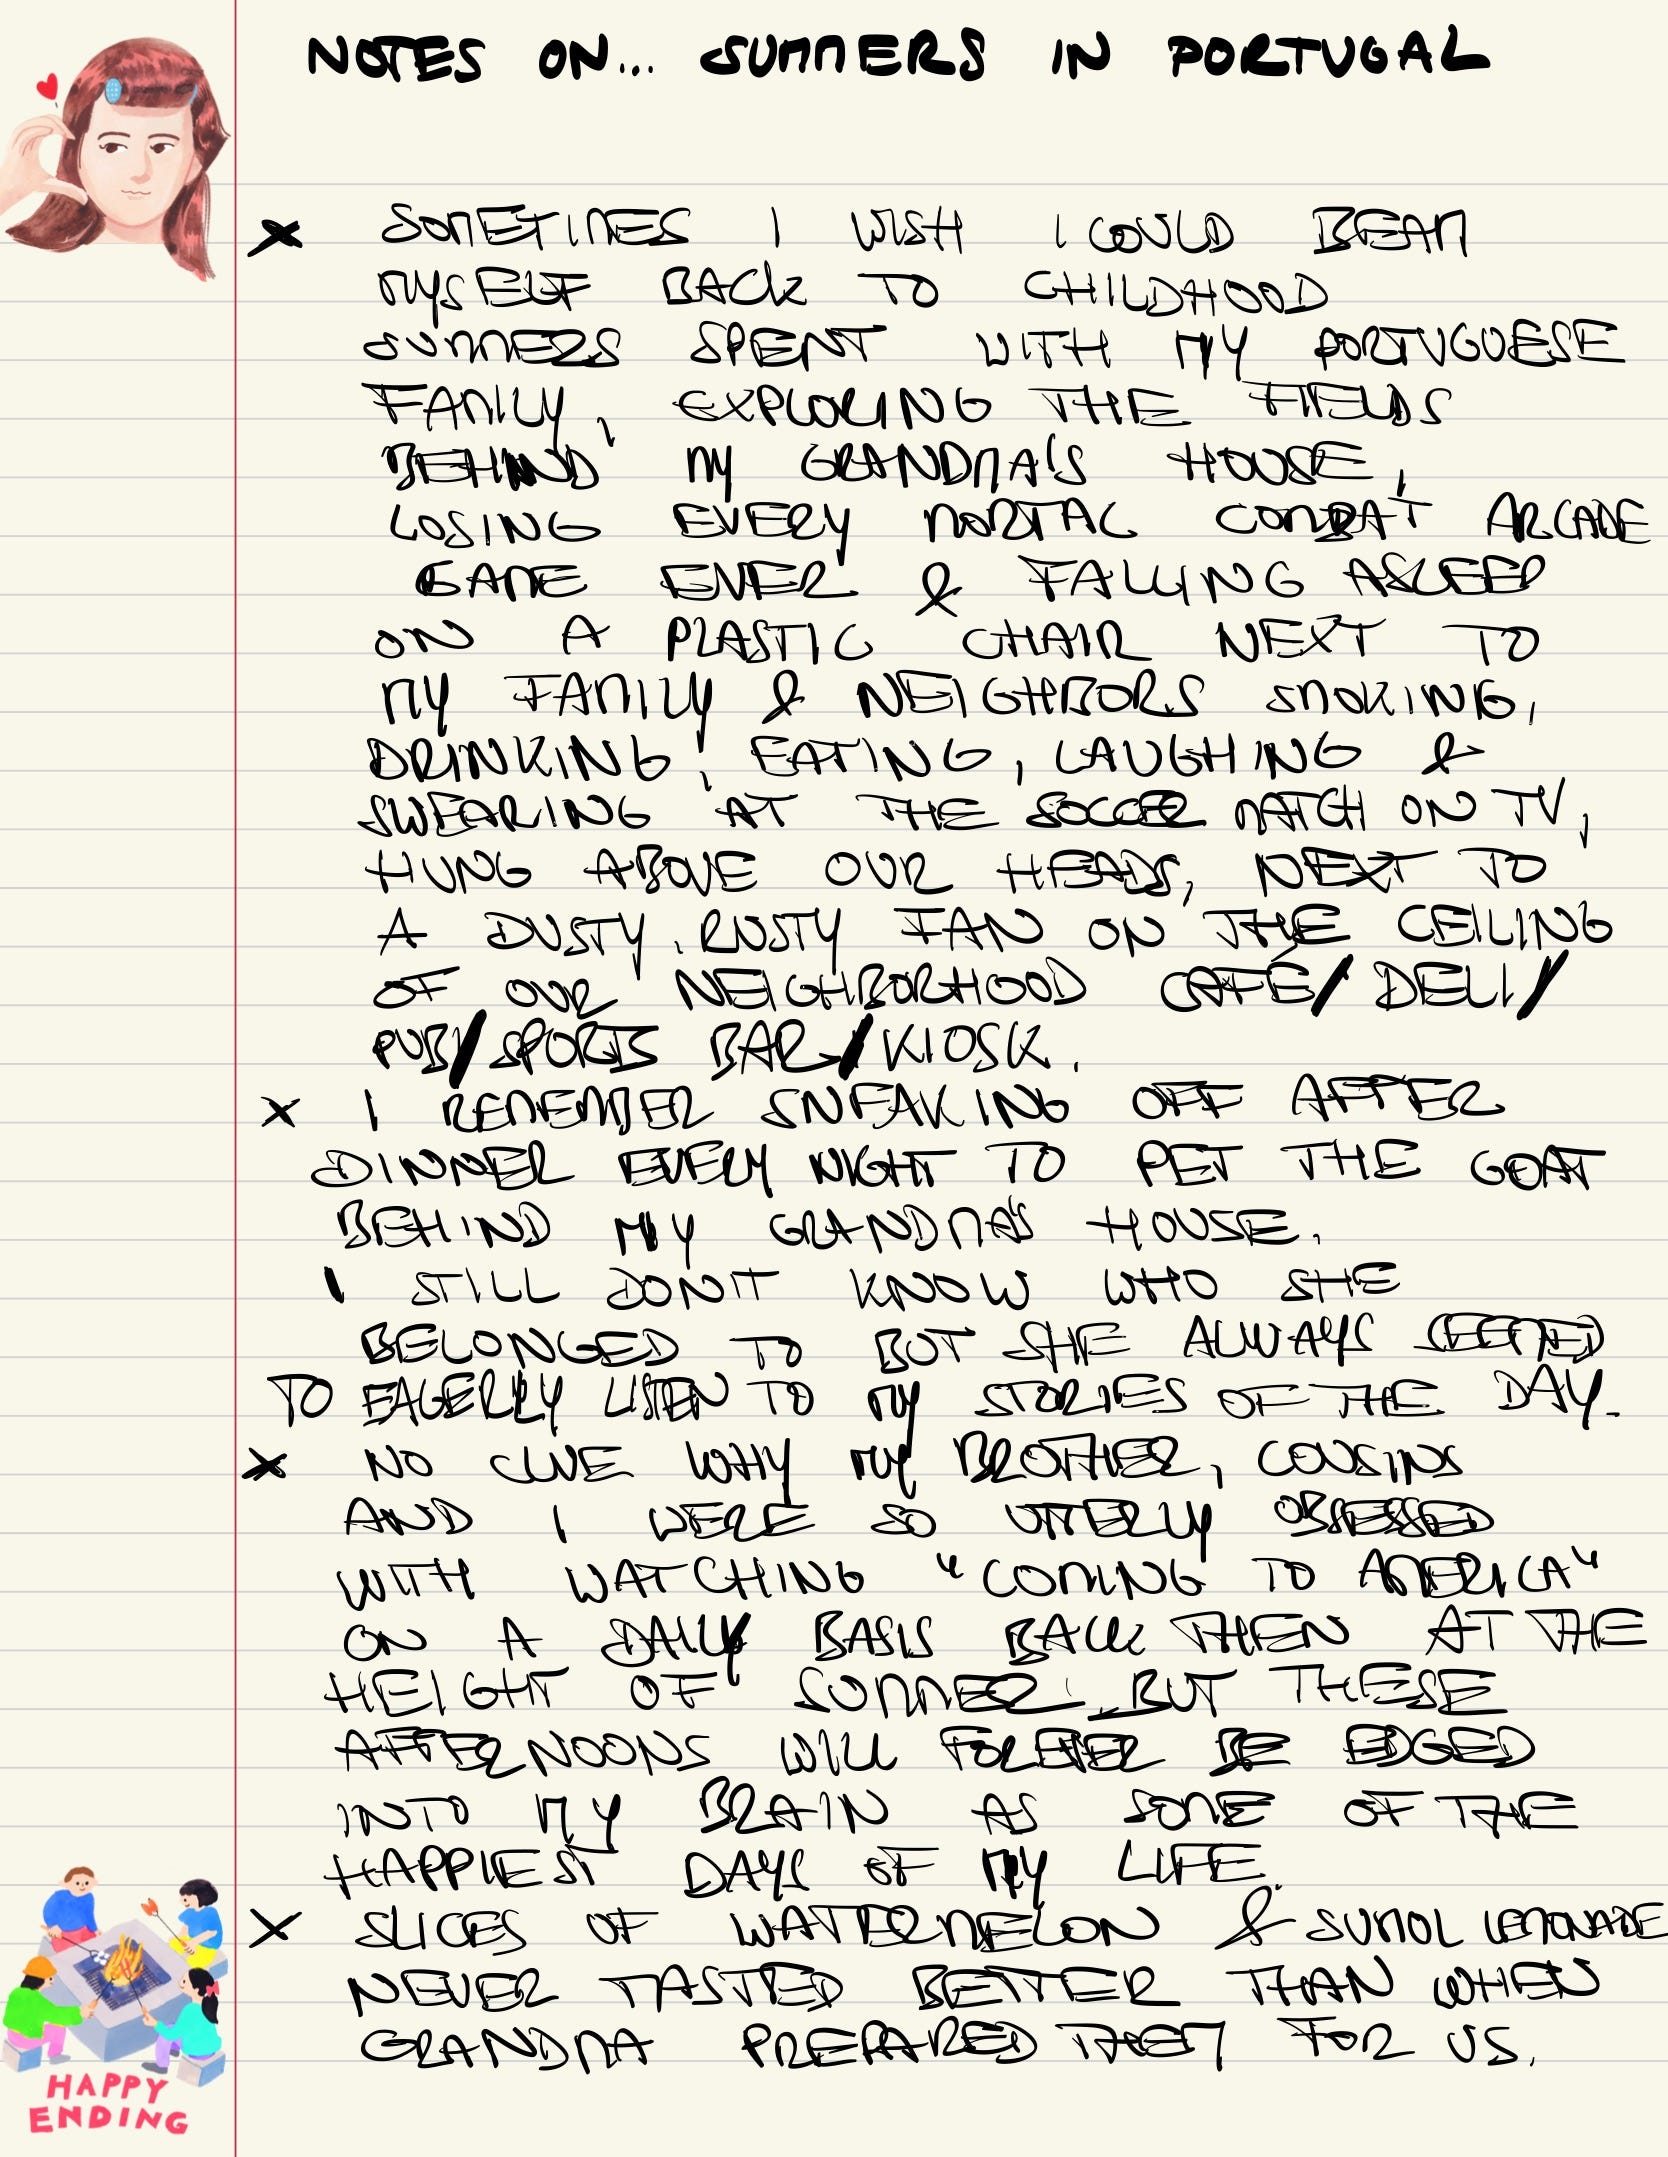 NOTES ON... SUMMERS IN PORTUGAL
x SOMETIMES I WISH I COULD BEAM
MYSELF BACK TO CHILDHOOD
SUMMERS SPENT WITH MY PORTUGUESE
FAMILY, EXPLORING THE FIELDS
BEHIND MY GRANDMA'S HOUSE,
LOSING EVERY MORTAL COMBAT ARCADE
GAME EVER & FALLING ASLEEP
ON A PLASTIC CHAIR NEXT TO
MY FAMILY & NEIGHBORS SMOKING,
DRINKING, EATING, LAUGHING &
SWEARING AT THE SOCCER MATCH ON TV,
HUNG ABOVE OUR HEADS, NEXT TO
A DUSTY, RUSTY FAN ON THE CEILING
OF OUR NEIGHBORHOOD CAFÉ/DELI/
PUB/SPORTS BAR/KIOSK.
x I REMEMBER SNEAKING OFF AFTER
DINNER EVERY NIGHT TO PET THE GOAT
BEHIND MY GRANDMA'S HOUSE.
I STILL DON'T KNOW WHO SHE
BELONGED TO BUT SHE ALWAYS SEEMED
TO EAGERLY LISTEN TO MY STORIES OF THE DAY.
x NO CLUE WHY MY BROTHER, COUSINS
AND I WERE SO UTTERLY OBSESSED
WITH WATCHING "COMING TO AMERICA"
ON A DAILY BASIS BACK THEN AT THE
HEIGHT OF SUMMER... BUT THESE
AFTERNOONS WILL FOREVER BE EDGED
INTO MY BRAIN AS SOME OF THE
HAPPIEST DAYS OF MY LIFE.
x SLICES OF WATERMELON & SUMOL LEMONADE
NEVER TASTED BETTER THAN WHEN
GRANDMA PREPARED THEM FOR US.
HAPPY
ENDING